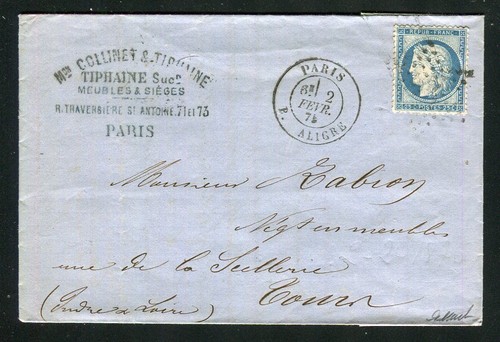 Mon COLLINET & TIPHAINE
TIPHAINE Sucr
MEUBLES & SIÈGES
R. TRAVERSIÈRE St ANTOINE, 71 et 73
PARIS
PARIS
6E 2
FEVR.
74
P. ALIGRE
REPUB. FRANC.
25 C. POSTES 25 C.
Monsieur Rabion
Negt en meubles
rue de la Scellerie
(Indre & Loire) Tours